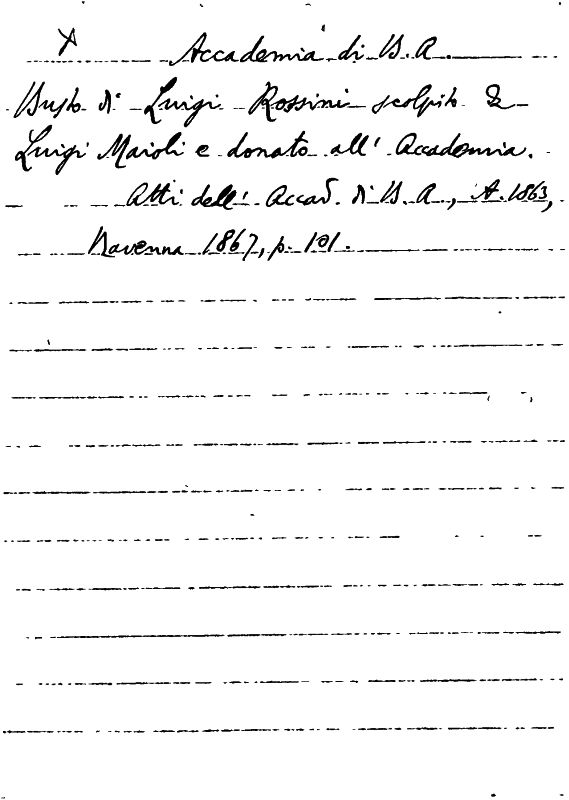 X Accademia di B. A.
Busto di Luigi Rossini scolpito da
Luigi Maioli e donato all' Accademia.
Atti dell' Accad. di B. A., A. 1863,
Ravenna 1867, p. 101.